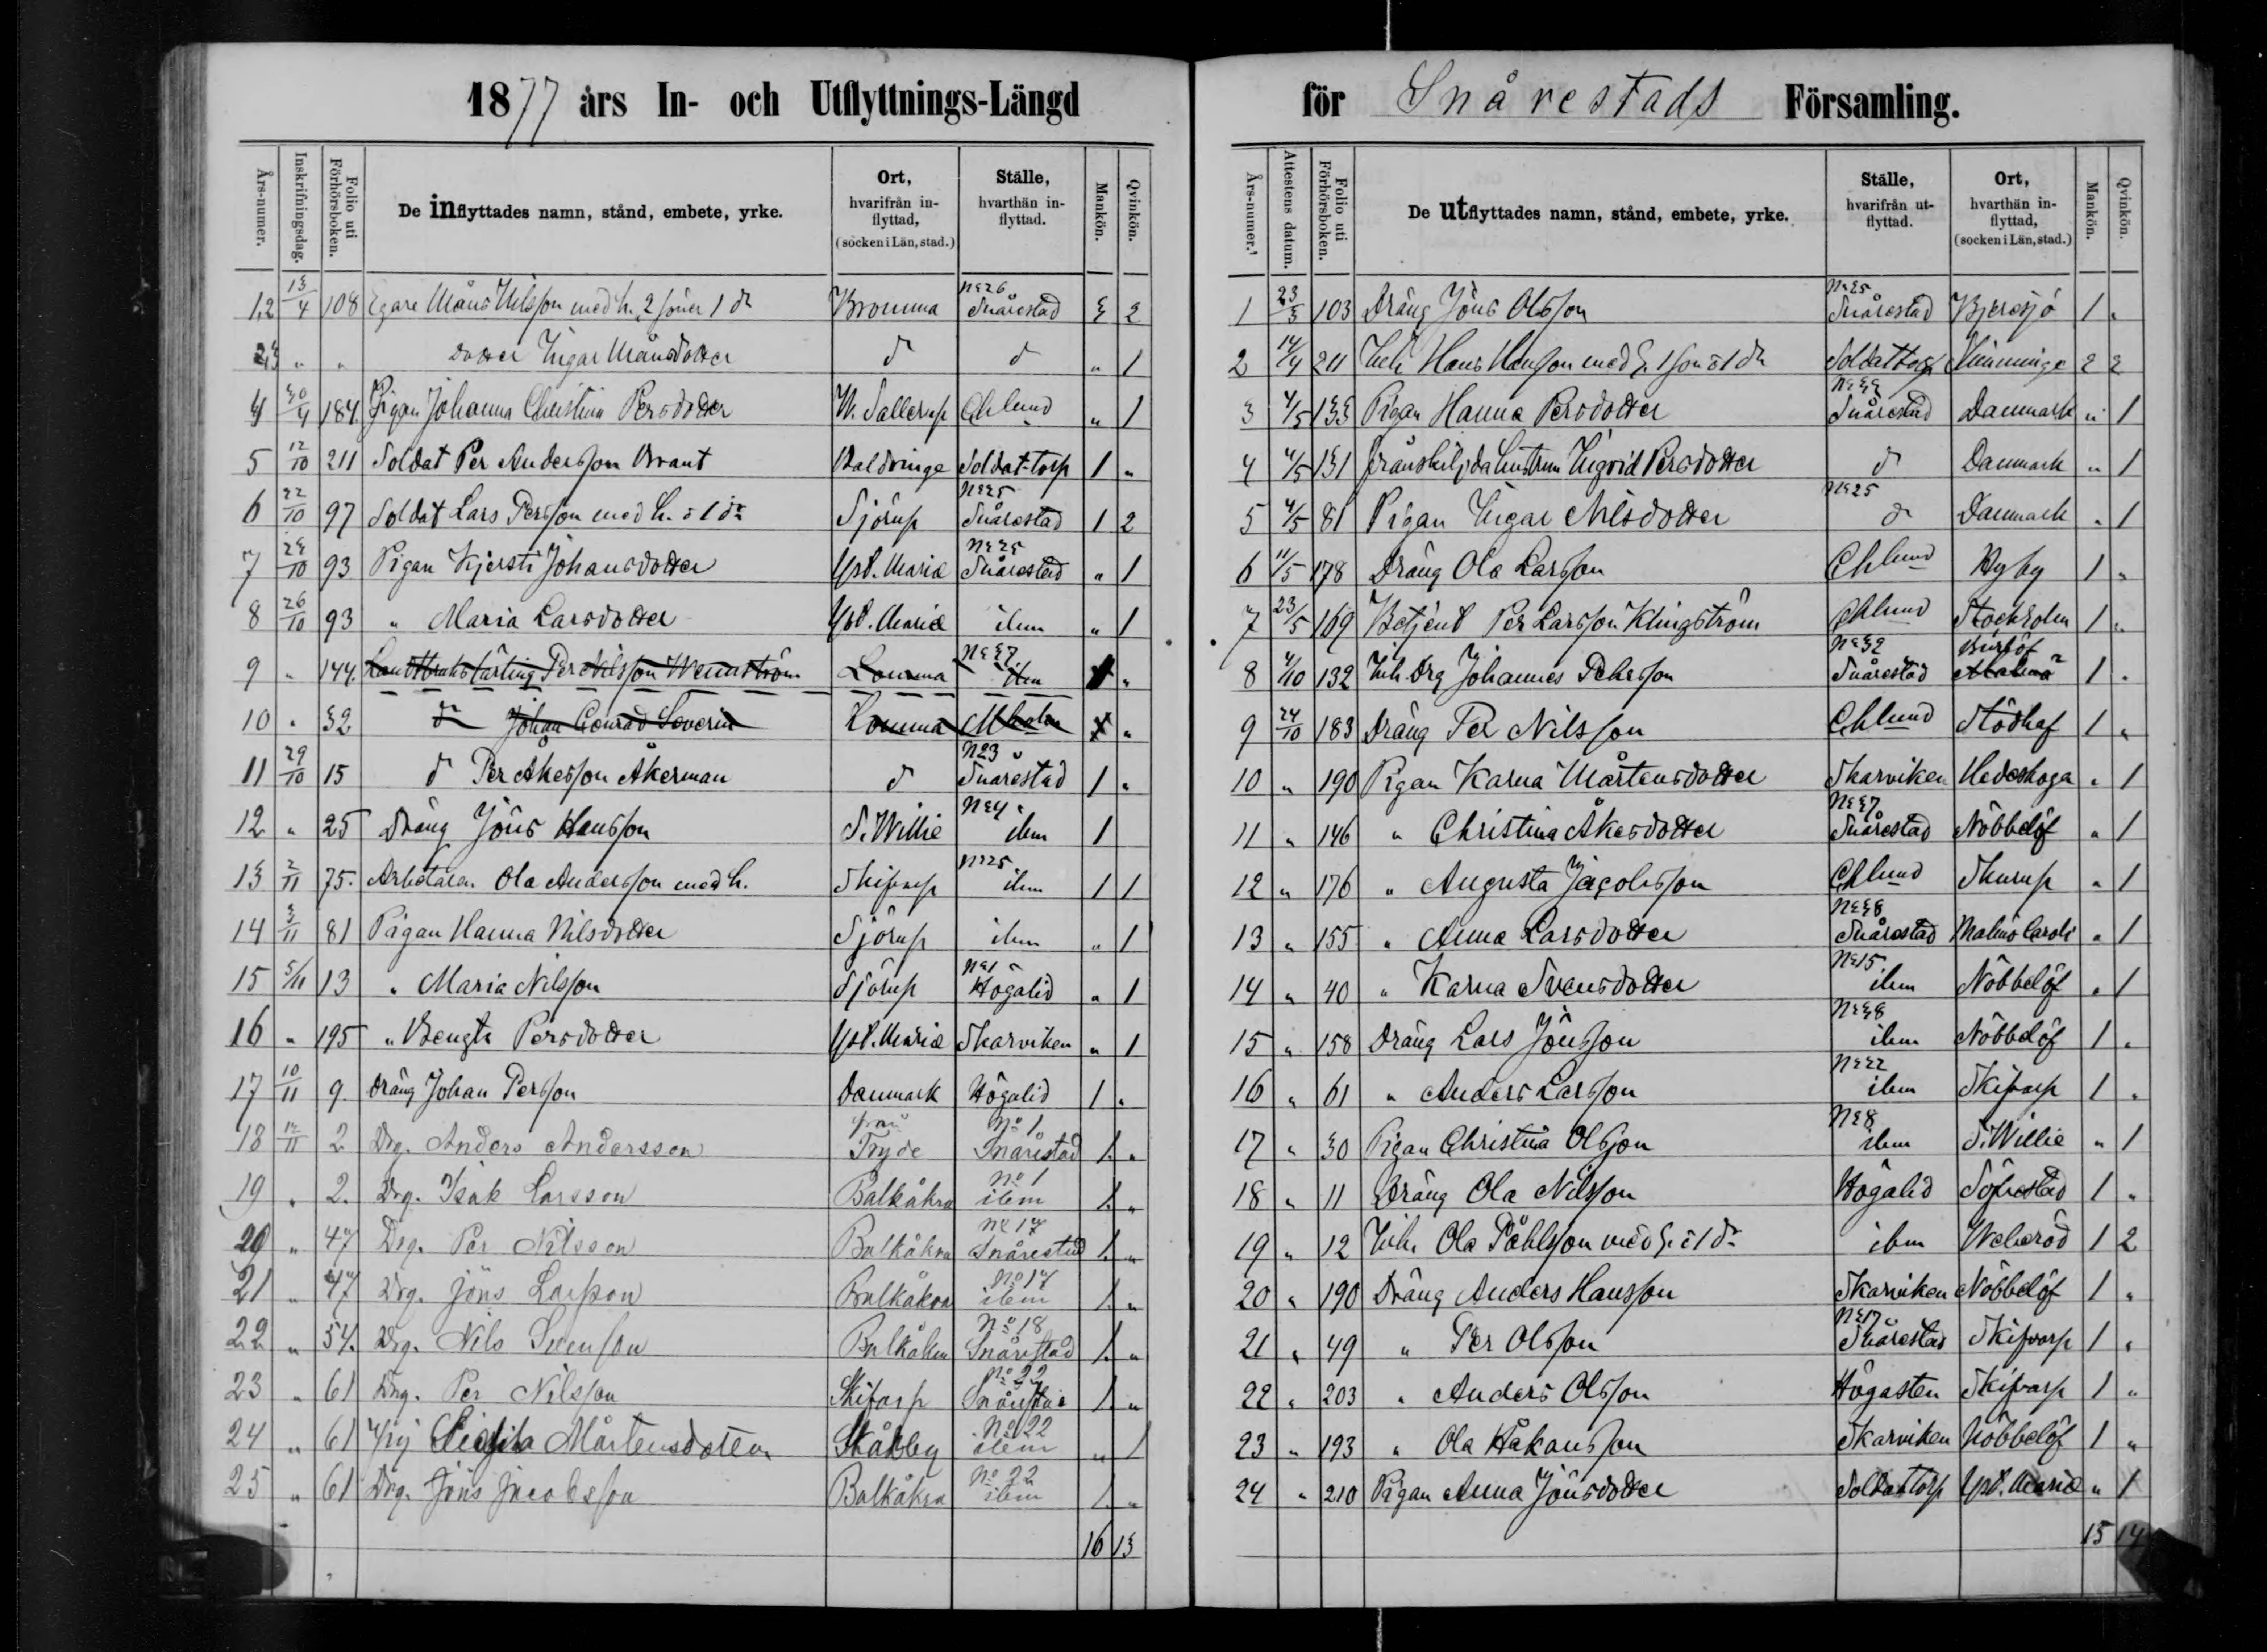 1877 års In- och Utflyttnings-Längd
Års-nummer. Inskrifningsdag. Folio uti Förhörsboken. De inflyttades namn, stånd, embete, yrke. Ort, hvarifrån inflyttad, (socken i Län, stad.) Ställe, hvarthän inflyttad. Mankön. Qvinkön.
1,2 13/4 108 Egare Måns Nilsson med h. 2 söner 1 dr Bromma No 26 Snårestad 3 2
2,3 " " dotter Ingar Månsdotter d d " 1
4 30/4 184. Pigan Johanna Christina Persdotter W. Sallerup Ehlund " 1
5 12/10 211 Soldat Per Andersson Brant Baldringe Soldat-torp 1 "
6 22/10 97 Soldat Lars Persson med h. o 1 dr Sjörup No 25 Snårestad 1 2
7 23/10 93 Pigan Kjersti Johansdotter Yst. Mariæ No 25 Snårestad " 1
8 26/10 93 " Maria Larsdotter Yst. Mariæ ibm " 1
9 " 144. Per Nilsson Wennström Lomma No 37 ibm 1 "
10 " 32 d Johan Conrad Severin Lomma "
11 29/10 15 d Per Åkesson Åkerman d No 3 Snårestad 1 "
12 " 25 Dräng Jöns Hansson S. Willie No 4 ibm 1
13 2/11 75. Arbetaren Ola Andersson med h. Skifarp No 25 ibm 1 1
14 3/11 81 Pigan Hanna Nilsdotter Sjörup ibm " 1
15 5/11 13 " Maria Nilsson Sjörup No 1 Högalid " 1
16 " 195 " Bengta Persdotter Yst. Mariæ Skarviken " 1
17 10/11 9. Dräng Johan Persson Danmark Högalid 1 "
18 12/11 2 Drg. Anders Andersson från Tryde No 1 Snårestad 1. "
19 " 2. Drg. Isak Larsson Balkåkra No 1 ibm 1. "
20 " 47 Drg. Per Nilsson Balkåkra No 17 Snårestad 1. "
21 " 47 Drg. Jöns Larsson Balkåkra No 17 ibm 1. "
22 " 54. Drg. Nils Svensson Balkåkra No 18 Snårestad 1. "
23 " 61 Drg. Per Nilsson Skifarp No 22 Snårestad 1. "
24 " 61 Mårtensdoter Skårby No 22 ibm " 1
25 " 61 Drg. Jöns Jacobsson Balkåkra No 22 ibm 1. "
16 13
för Snårestads Församling.
Års-nummer. Attestens datum. Folio uti Förhörsboken. De utflyttades namn, stånd, embete, yrke. Ställe, hvarifrån utflyttad. Ort, hvarthän inflyttad, (socken i Län, stad.) Mankön. Qvinkön.
1 23/3 103 Dräng Jöns Olsson No 25 Snårestad Bjeresjö 1 "
2 14/4 211 Inh. Hans Hansson med h. 1 son o 1 dr Soldattorp Hemminge 2 2
3 4/5 133 Pigan Hanna Persdotter No 33 Snårestad Danmark " 1
4 4/5 131 Frånskiljda hustrun Ingrid Persdotter d Danmark " 1
5 4/5 81 Pigan Ingar Nilsdotter No 25 d Danmark " 1
6 11/5 178 Dräng Ola Larsson Ehlund Hyby 1 "
7 23/5 169 Betjent Per Larsson Klingström Ehlund Stockholm 1 "
8 4/10 132 Inh. Drg Johannes Pehrsson No 32 Snårestad Burlöf Malmö 1 "
9 24/10 183 Dräng Per Nilsson Ehlund Stödhaf 1 "
10 " 190 Pigan Karna Mårtensdotter Skarviken Hedeskoga " 1
11 " 146 " Christina Åkesdotter No 37 Snårestad Nöbbelöf " 1
12 " 176 " Augusta Jacobsson Ehlund Skurup " 1
13 " 155 " Anna Larsdotter No 38 Snårestad Malmö Caroli " 1
14 " 40 " Karna Svensdotter No 15 ibm Nöbbelöf " 1
15 " 158 Dräng Lars Jönsson No 38 ibm Nöbbelöf 1 "
16 " 61 " Anders Larsson No 22 ibm Skifvarp 1 "
17 " 30 Pigan Christina Olsson No 8 ibm S. Willie " 1
18 " 11 Dräng Ola Nilsson Högalid Söfvestad 1 "
19 " 12 Inh. Ola Påhlsson med h. o 1 dr ibm Weberöd 1 2
20 " 190 Dräng Anders Hansson Skarviken Nöbbelöf 1 "
21 " 49 " Per Olsson No 17 Snårestad Skifvarp 1 "
22 " 203 " Anders Olsson Högasten Skifvarp 1 "
23 " 193 " Ola Håkansson Skarviken Nöbbelöf 1 "
24 " 210 Pigan Anna Jönsdotter Soldattorp Yst. Mariæ " 1
15 14